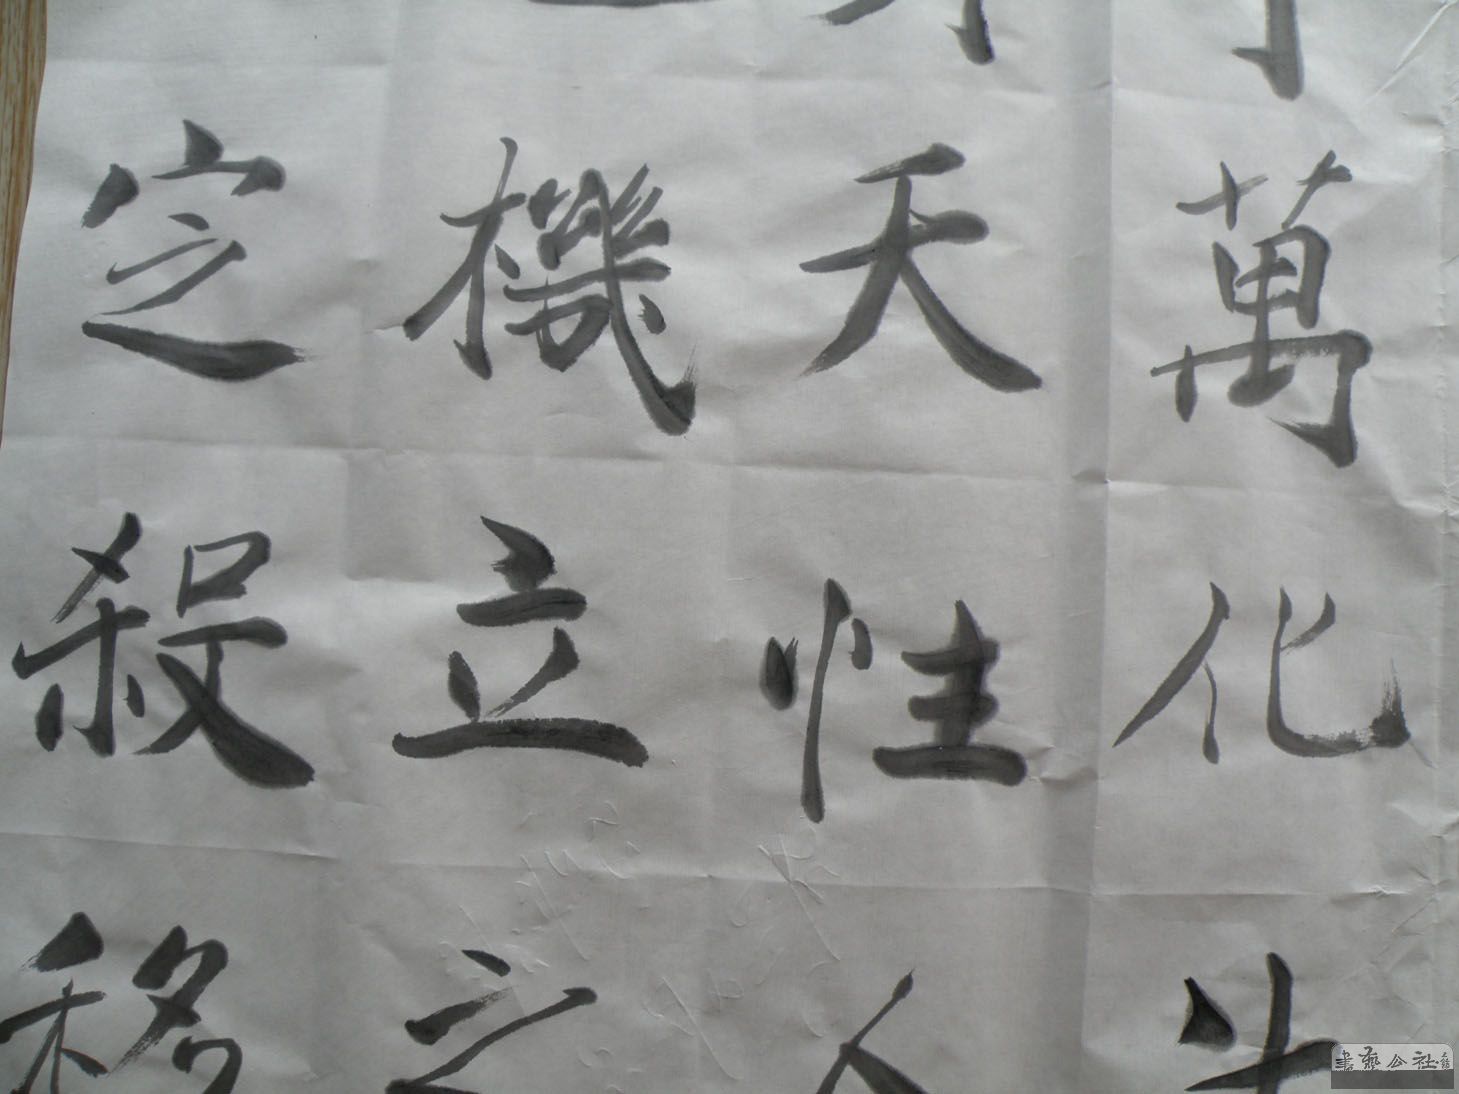 萬化
天性人
機立之
定殺移
書藝公社